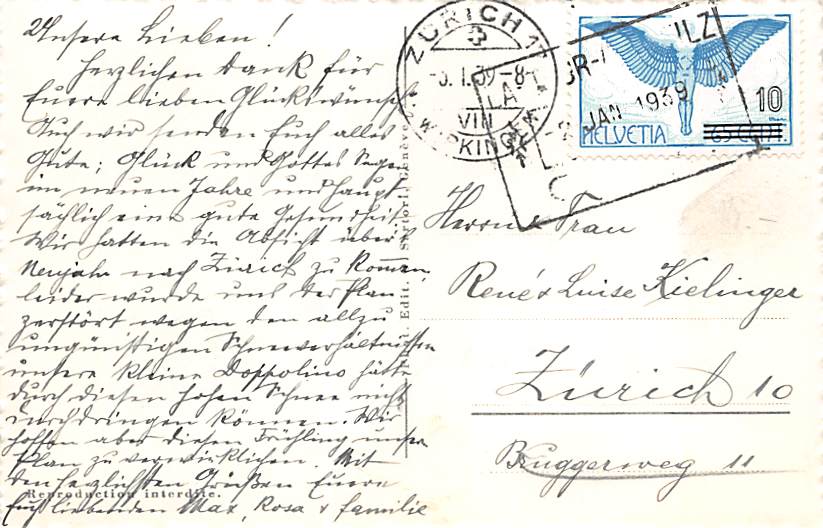 Unsere Lieben!
Herzlichen Dank für
Euere lieben Glückwünsche
Auch wir senden Euch alles
Gute; Glück und Gottes Segen
im neuen Jahre und haupt
sächlich eine gute Gesundheit.
Wir hatten die Absicht über
Neujahr nach Zürich zu kommen,
leider wurde uns der Plan
zerstört wegen den allzu
ungünstigen Schneeverhältnissen
unsere kleine Doppolino hätte
durch diesen hohen Schnee nicht
durchdringen können. Wir
hoffen aber diesen Frühling unsern
Plan zu verwirklichen. Mit
den herzlichsten Grüßen Euere
Euch liebenden Max, Rosa & familie
Reproduction interdite.
Edit. Sartori, Genève
ZÜRICH 17
39-8
VIII
WIPKINGEN
JAN 1939
10
HELVETIA
65 CENT.
Herrn & Frau
René & Luise Kielinger
Zürich 10
Bruggerweg 11